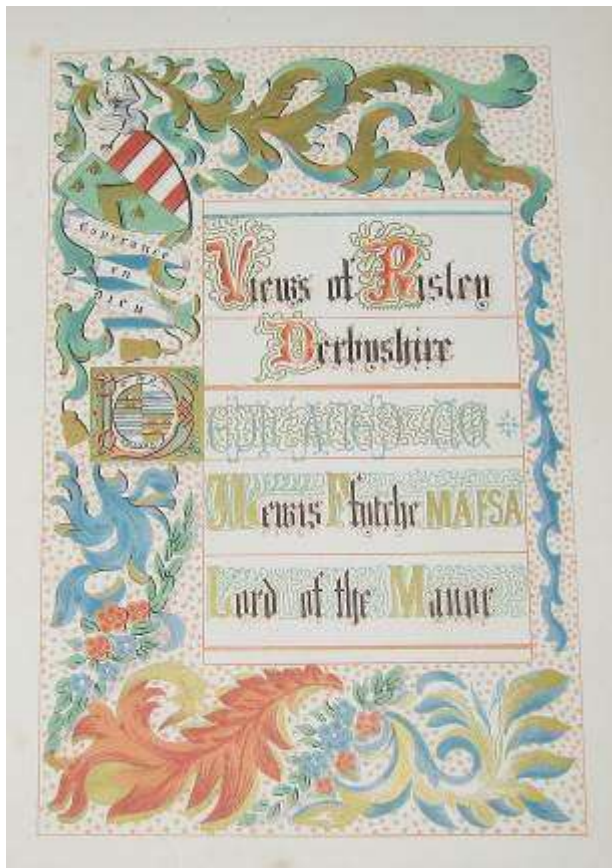 Esperance
en
Dieu
Views of Risley
Derbyshire
Lewis Ffytche MAFSA
Lord of the Manor